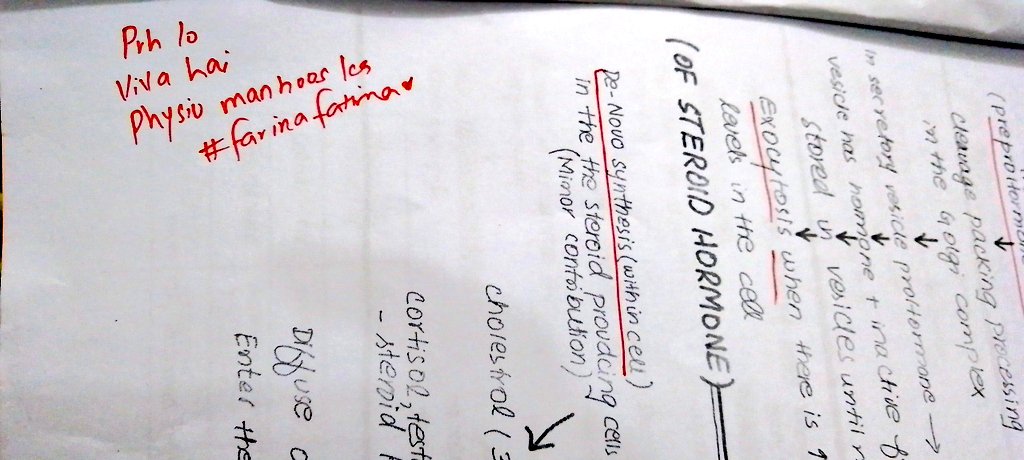 Prh lo
Viva hai
Physio manhoos les
#farinafatima
(preprohormone
cleavage packing processing
in the golgi complex
in secretory vesicle prohormone →
vesicle has hormone + inactive f
stored in vesicles until
Exocytosis when there is ↑
levels in the cell
(OF STEROID HORMONE)
De-Novo synthesis (within cell)
in the the steroid producing cells
(Minor contribution)
cholestrol (
cortisol, test
- steroid
Diffuse
Enter the